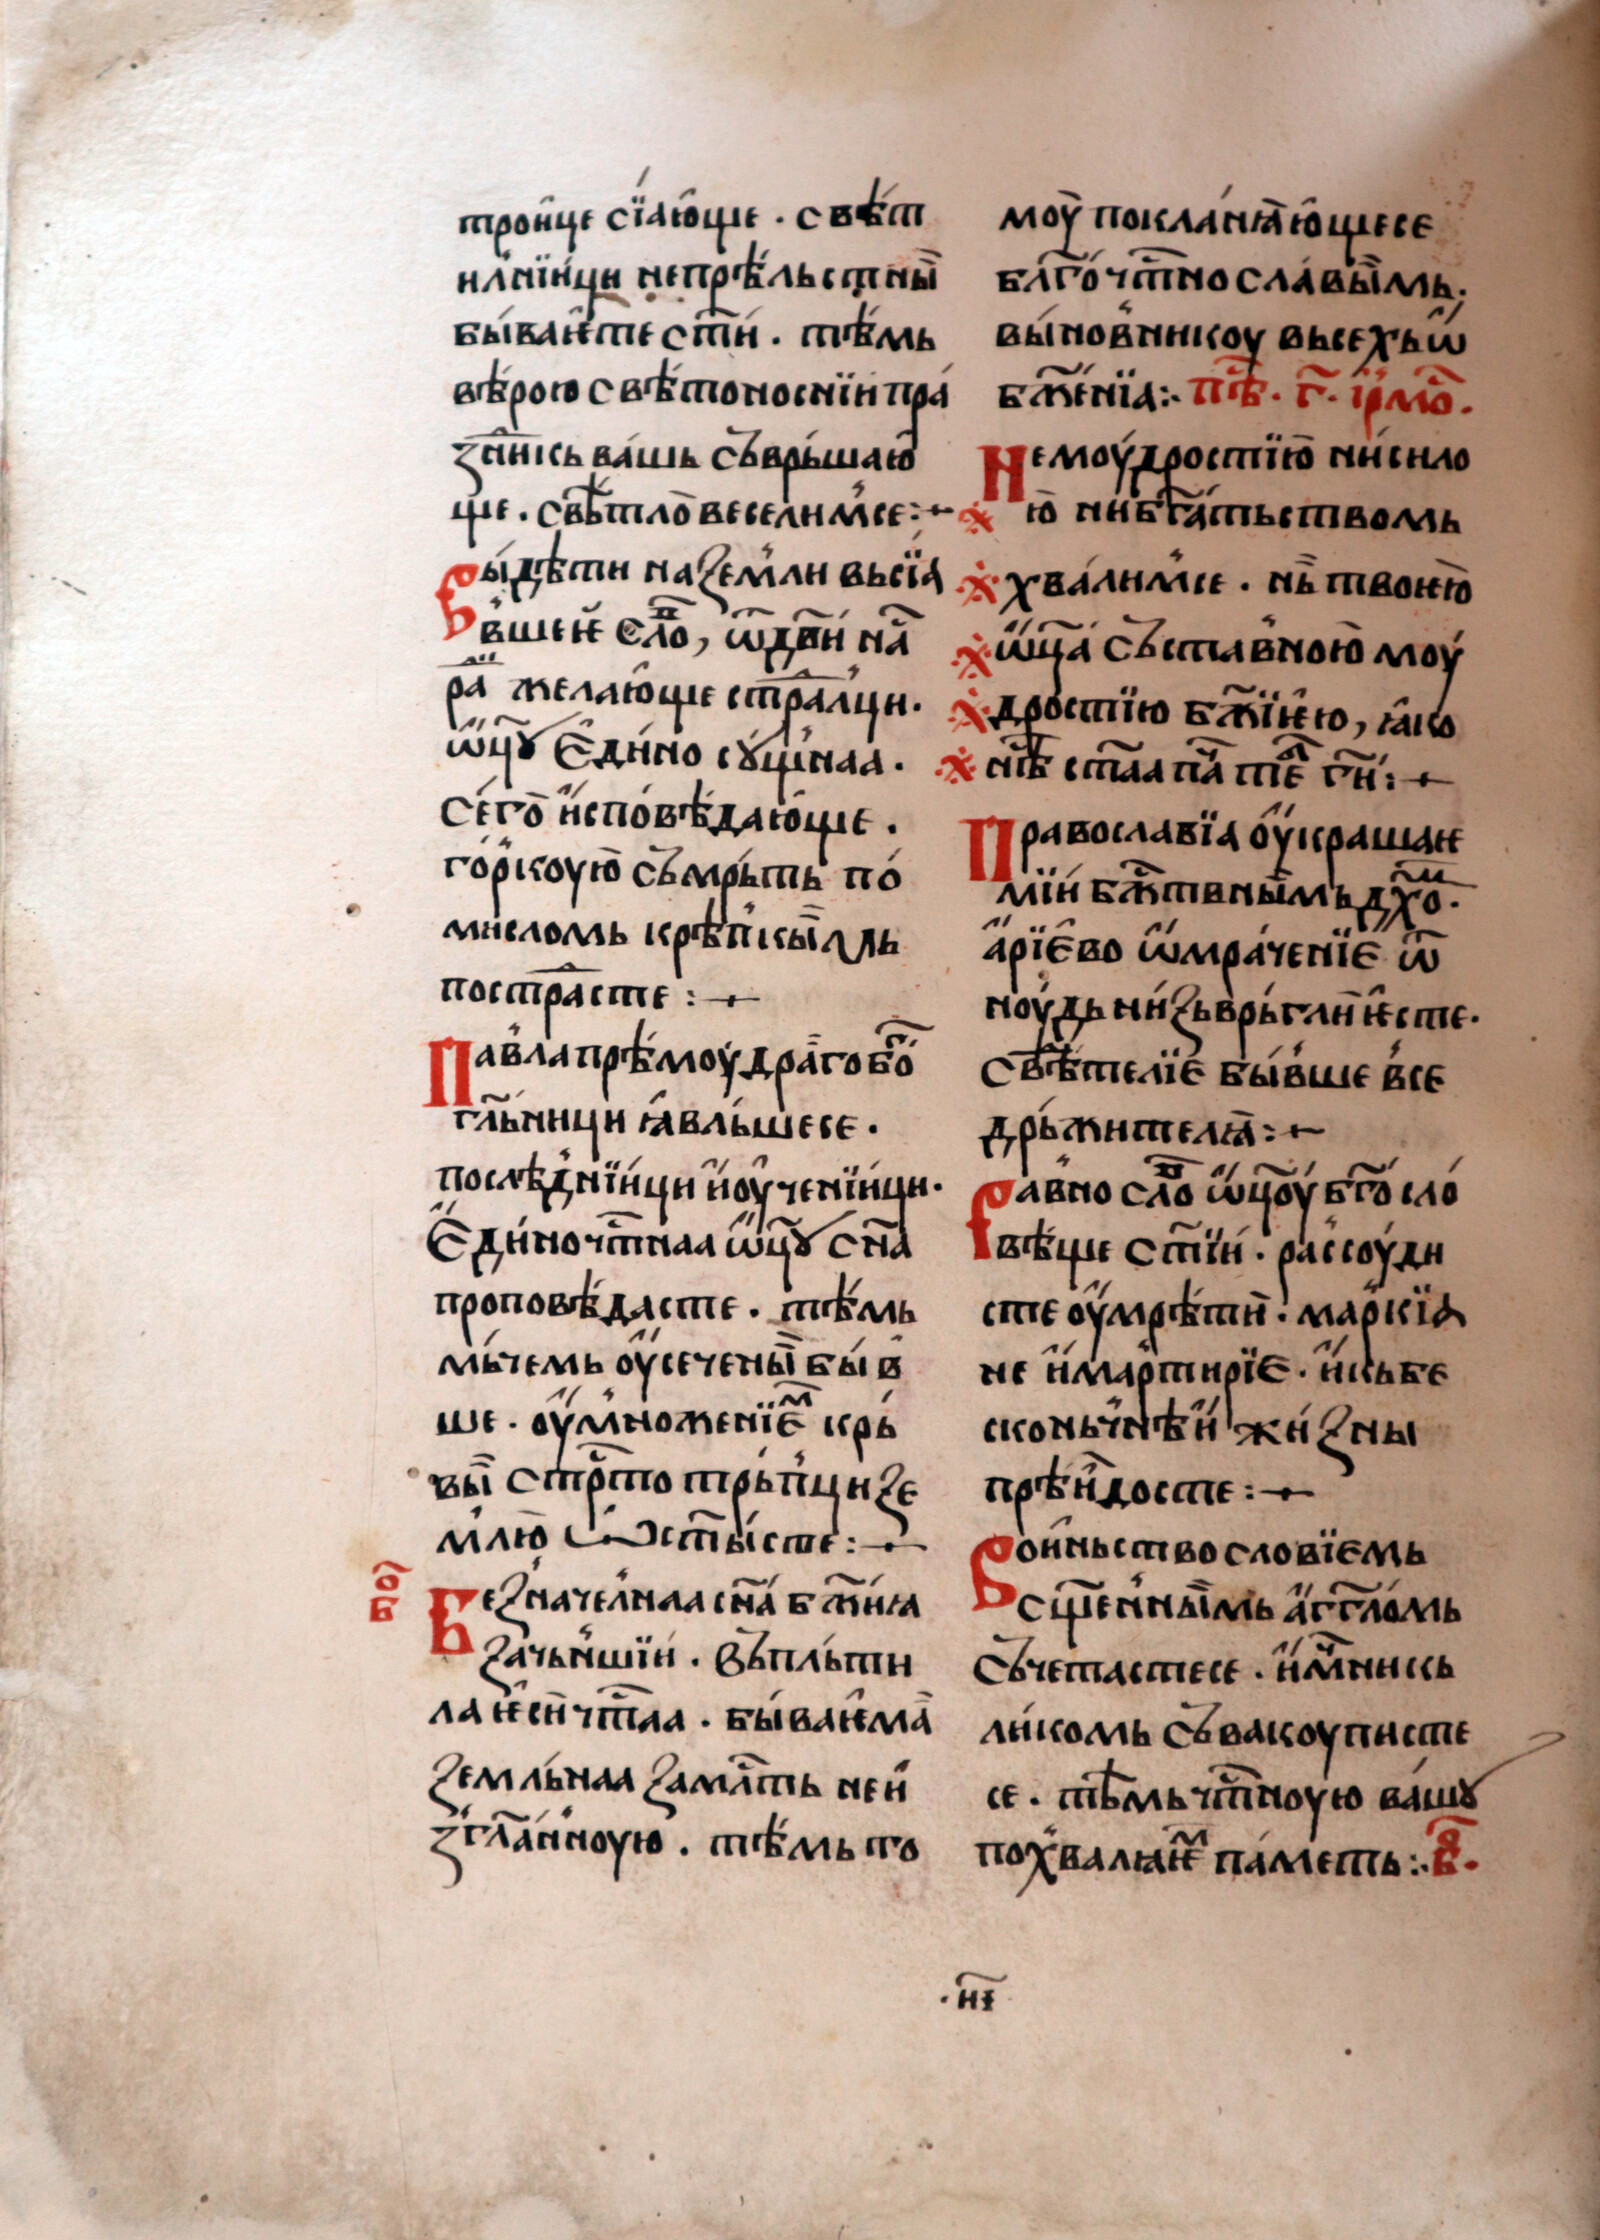 трои҆це сїа́ю҆ще . свѣ́т
и́лнїи҆ци непрѣ́льстны̏
бы́ваѥ҆те ст҃и́ . тѣ́мь
вѣ́рою свѣ́тоноснїи пра́
ꙁдн҃икь ва́шь съврь́шаю҆
ще . свѣ́тло̀ весели́мсе : ~
Вы́дѣ́ти на ꙁемли вьсїа́
в́шеѥ сл҃о́, ѿ дв҃и́ на҃
ра҃ жела́ю҆ще стра҃да́лци .
ѡ҆ц҃ꙋ є҆ди́но сꙋщ́наа .
сего̀ и҆сповѣ́даю҆ще .
го́рькоую̀ съмрь́ть по́
мисломь крѣ́пкы̏мь
постра҃сте : ~
Па́вла прѣ́моу́дра́го бо҃
гл҃ьници ꙗ҆вль́шесе .
послѣ́днїи҆ци и҆ оу҆ченїи҆ци .
є҆ди́ночт҃наа ѡ҆ц҃ꙋ сн҃а
проповѣ́дасте . тѣ́мь
мьчемь оу҆сечены̏ бы́в
ше . оу҆множенїє҆м крь́
вы̏ стр҃то трь́пци ꙁе
млю̀ ѡ҆ст҃ы́сте : ~
бо҃
Беꙁначе́лнаа сн҃а бж҃иꙗ
ꙁачь́ншїи . въпль́ти
ла ѥси чт҃аа . бы́ваѥ҆ма̀
ꙁемль́наа ꙁа мл҃ть неи
ꙁгл҃а́нноую . тѣ́мь то
моу̀ покла́нꙗю҆щесе
бл҃го́чт҃но сла́вы̏мь .
вы́новнникоу вьсехь ѡ҆
бж҃е́нїа :· пѣ҃. г҃. і҆рмо҃.
Не моу́дростїю̀ ни сило
ю̀ ни бг҃а́тьствомь
хва́лимсе . нь̀ твоѥю̀
ѡ҆ц҃а́ съста́вною̀ моу́
дро́стїю бж҃їѥ҆ю, ꙗ҆ко
нѣ҃ ст҃аа па҃ тє҃ гн҃и : ~
Православїа оу҆краша́ѥ
мїи бж҃твны̏мь дх҃о́м .
а҆рїє҆во ѡ҆мра́ченїє ѿ
ноу́дь ни́ꙁьврь́гли ѥ҆сте .
свѣ́телїє бы́вше все
дрь́жителꙗ : ~
Ра́вно сл҃о ѡ҆ц҃оу бг҃о́сло́
вѣ́ще ст҃їи . ра́ссоу́ди
сте оу҆мрѣ́ти . ма́ркїа
не и҆ ма́ртирїє . и҆ кь бе
сконь́чнѣ́и жи́ꙁны
прѣ́и҆досте : ~
Вои́ньство словїємь
сщ҃еннымь а҆гг҃ломь
съчета́стесе . и҆ мч҃никь
ли́комь съвакоуписте
се . тѣ́мь чт҃ноую ва́шꙋ
похвалꙗѥ҆м па́меть :· в҃.
· ни҃